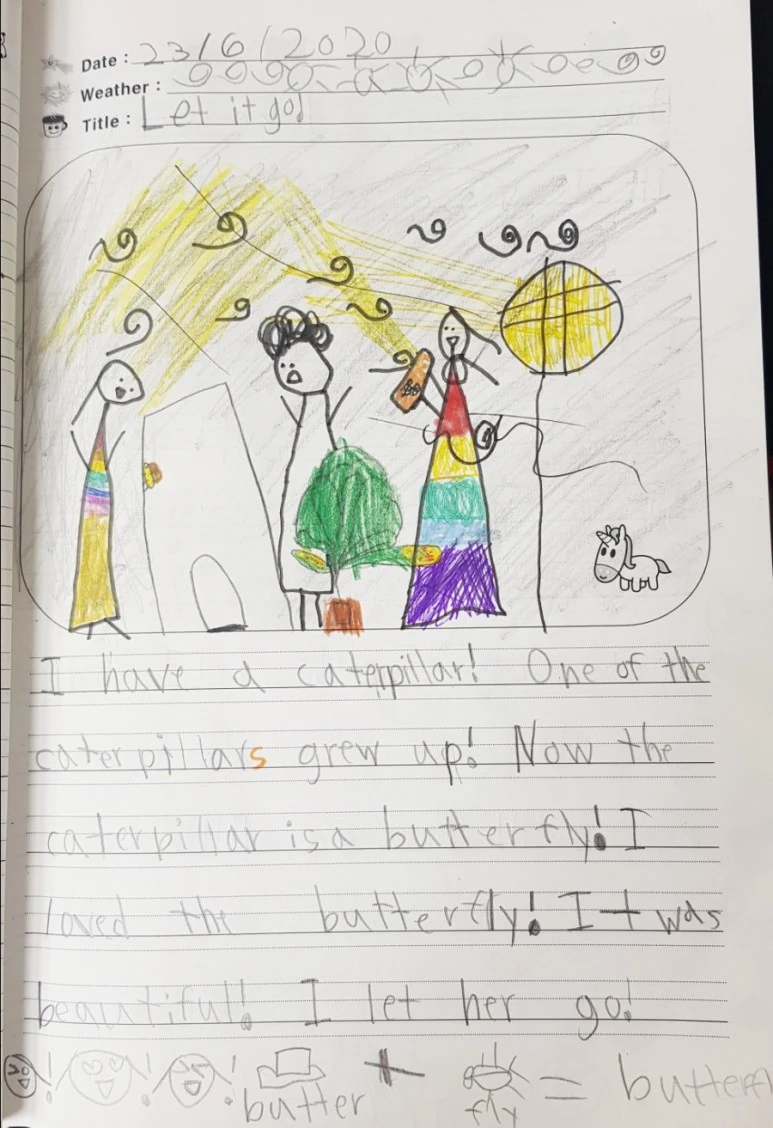 Date : 23/6/2020
Weather :
Title : Let it go!
I have a caterpillar! One of the
caterpillars grew up! Now the
caterpillar is a butterfly! I
loved the butterfly! It was
beautiful! I let her go!
! ! ! + = butterfly
butter fly